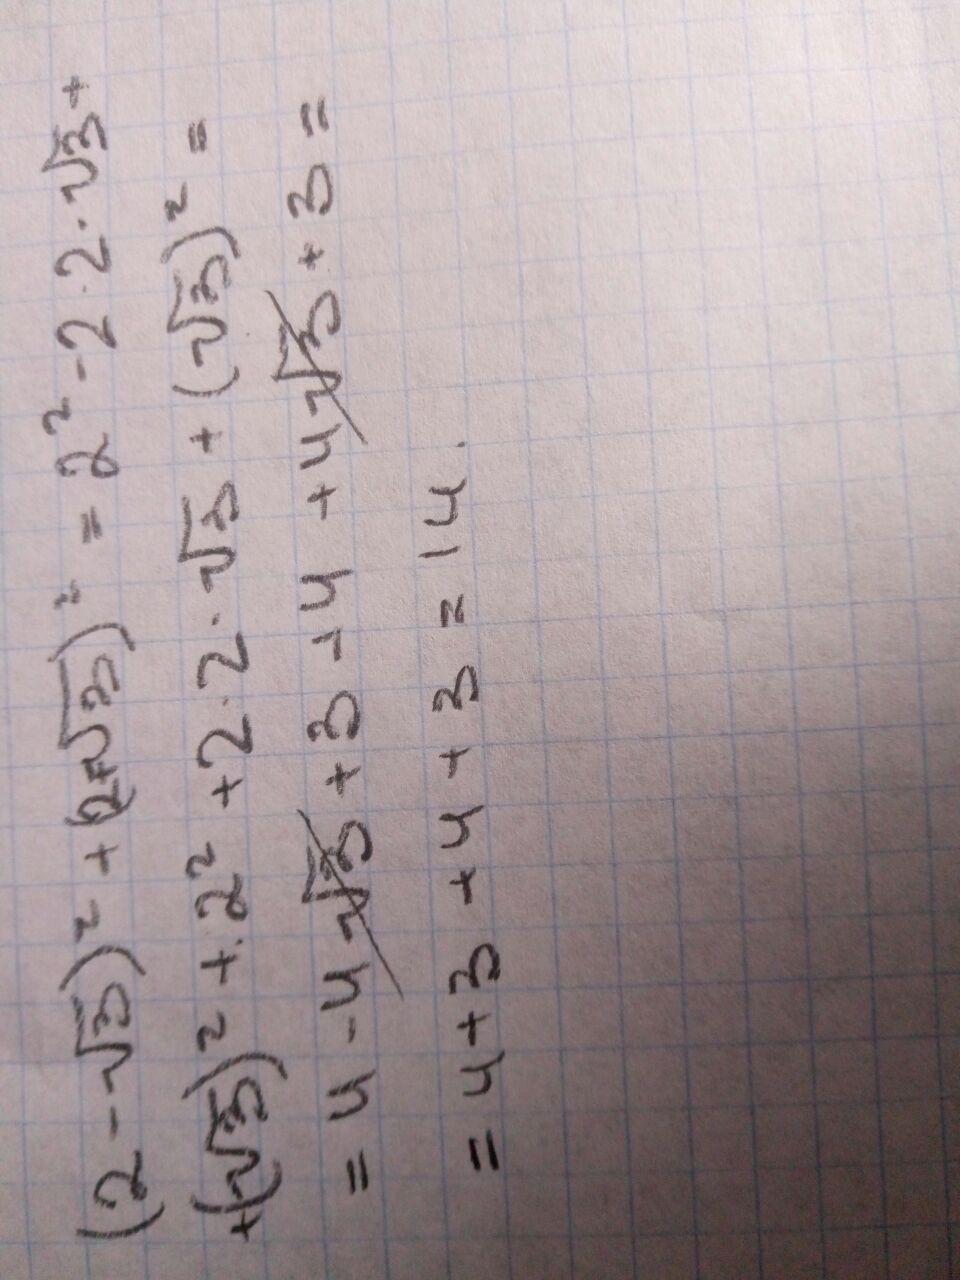 (2 - √3)² + (2+√3)² = 2² - 2 · 2 · √3 +
+(√3)² + 2² + 2 · 2 · √3 + (√3)² =
= 4 - 4√3 + 3 + 4 + 4√3 + 3 =
= 4 + 3 + 4 + 3 = 14.